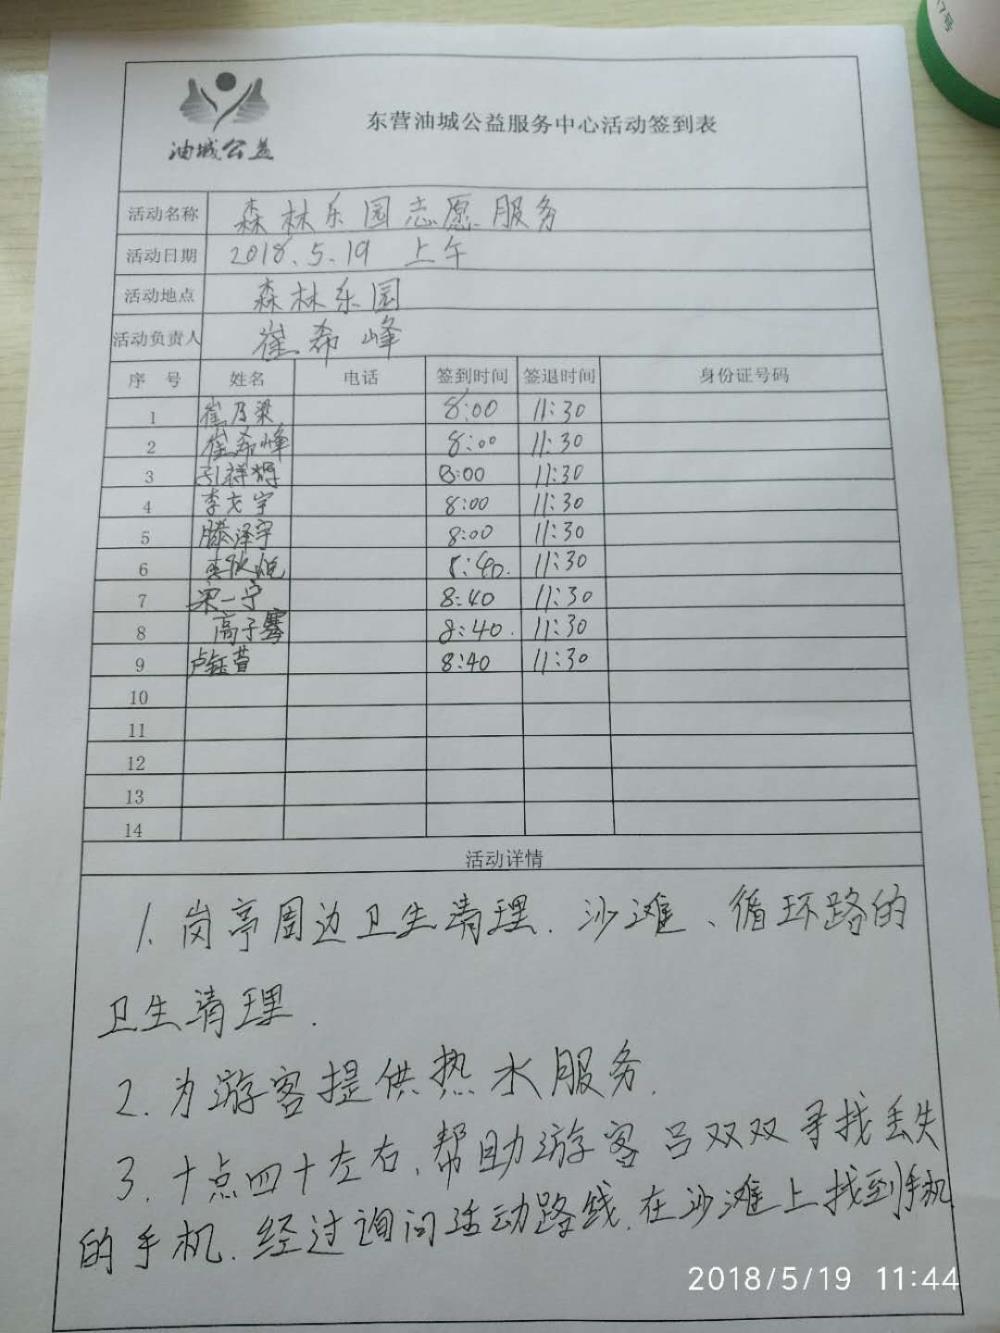 17号
油城公益
东营油城公益服务中心活动签到表
活动名称 森林乐园志愿服务
活动日期 2018.5.19 上午
活动地点 森林乐园
活动负责人 崔希峰
序 号 姓名 电话 签到时间 签退时间 身份证号码
1 崔乃梁 8:00 11:30
2 崔希峰 8:00 11:30
3 8:00 11:30
4 李文宇 8:00 11:30
5 滕泽宇 8:00 11:30
6 8:40. 11:30
7 宋一宁 8:40 11:30
8 高子骞 8:40. 11:30
9 卢钰萱 8:40 11:30
10
11
12
13
14
活动详情
1. 岗亭周边卫生清理. 沙滩、循环路的
卫生清理.
2. 为游客提供热水服务.
3. 十点四十左右, 帮助游客吕双双寻找丢失
的手机. 经过询问活动路线. 在沙滩上找到手机
2018/5/19 11:44